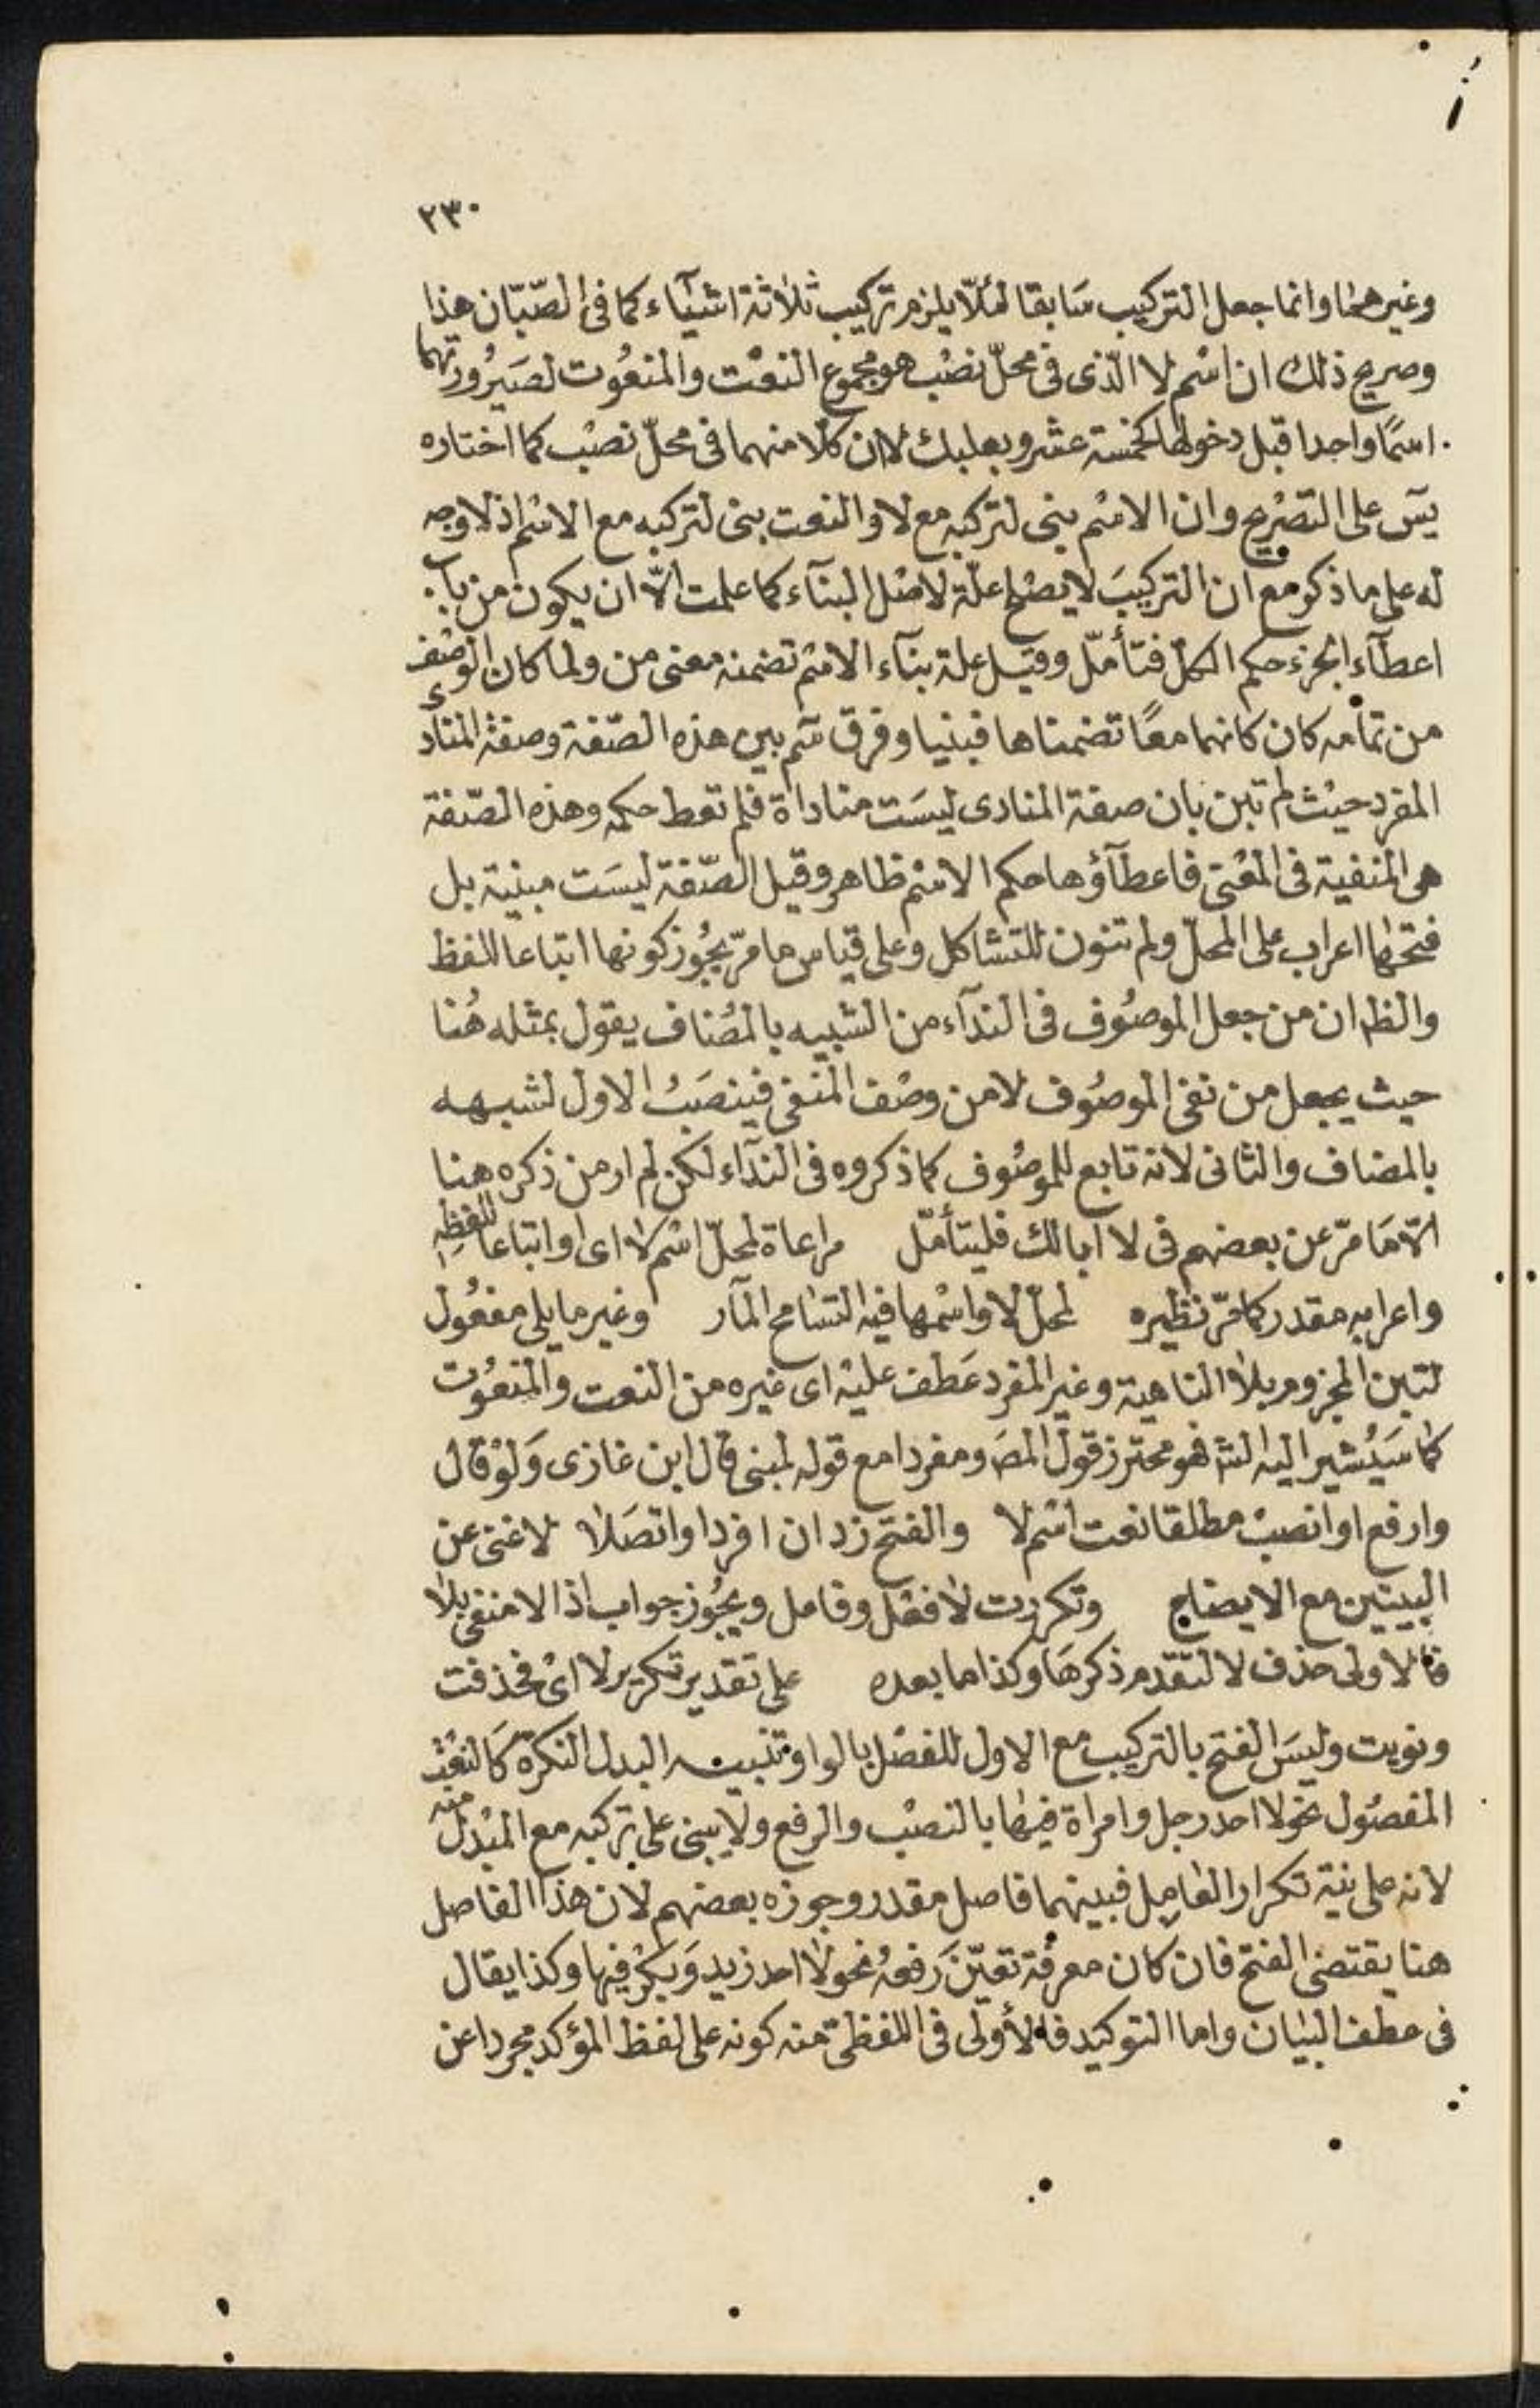 ٢٣٠
وغيرهما وانما جعل التركيب سابقا لئلّا يلزم تركيب ثلاثة اشيآء كما فى الصّبّان هذا
وصريح ذلك ان اسْم لا الّذى فى محلّ نصْب هو مجموع النعْت والمنعُوت لصَيرُورتهما
اسمًا واحدا قبل دخولها كخمسة عشر وبعلبك لا ان كلا منهما فى محلّ نصْب كما اختاره
يسَ على التصْريح وان الاسْم بنى لتركبه مع لا والنعت بنى لتركبه مع الاسْم اذ لا وجه
له على ما ذكر مع ان التركيبَ لا يصْلح علّة لاصْل البنآء كما علمت الّا ان يكون من باب
اعطآء الجزء حكم الكل فتأمّل وقيَل علة بنآء الاسْم تضمنه معنى من ولما كان الوصْف
من تمامه كان كانهما معًا تضمناها فبنيا وفرق سَم بين هذه الصّفة وصفة المنادى
المفرد حيْث لم تبن بان صفة المنادى ليسَت مناداة فلم تعط حكمه وهذه الصّفة
هى المنفية فى المعْنى فاعطآؤها حكم الاسْم ظاهر وقيل الصّفة ليسَت مبنية بل
فتحتها اعراب على المحلّ ولم تنون للتشاكل وعلى قياس ما مرّ يجُوز كونها اتباعا للفظ
والظ ان من جعل الموصُوف فى الندآء من الشبيه بالمضاف يقول بمثله هُنا
حيث يجعل من نفى الموصُوف لا من وصْف المنفى فينصَبُ الاول لشبهه
بالمضاف والثانى لانه تابع للموصُوف كما ذكروه فى الندآء لكن لم ار من ذكره هنا
الّا مَا مرّ عن بعضهم فى لا ابا لك فليتأمّل مراعاة لمحلّ اسْم لا اى او اتباعا للفظه
واعرابه مقدر كما مرّ نظيره لمحلّ لا واسْمها فيه التسَامح المآر وغير ما يلى مفعُول
لتبن المجزوم بلا الناهية وغير المفرد عَطف عليْه اى غيره من النعت والمنعُوت
كما سَيُشير اليه الشَ فهو محترز قول المصَ ومفردا مع قوله لمبنى قال ابن غازى وَلوْ قال
وارفع او انصبْ مطلقا نعت اسْم لا والفتح زد ان افردا واتصَلا لاغنى عن
البيتين مع الايضاح وتكررت لا فصْل وقامل ويجُوز جواب اذ الا منفى بلا
فالاولى حذف لا لتقدّم ذكرهَا وكذا ما بعده على تقدير تكرير لا اىْ فحذفت
ونويت وليسَ الفتح بالتركيب مع الاول للفصْل بالواو تنبيه البدل النكرة كَالنعْت
المفصُول نحو لا احد رجل وامراة فيها بالنصْب والرفع ولا يبنى على تركبه مع المبْدل منه
لانه على نية تكرار العَامِل فبينهما فاصل مقدر وجوزه بعضهم لان هذا الفاصل
هنا يقتضى الفتح فان كان معرفة تعيّنَ رَفعهُ نحو لا احد زيد وَبكرْ فيها وكذا يقال
فى عطف البيَان واما التوكيد فالأولى فى اللفظى منه كونه على لفظ المؤكد مجردا عن